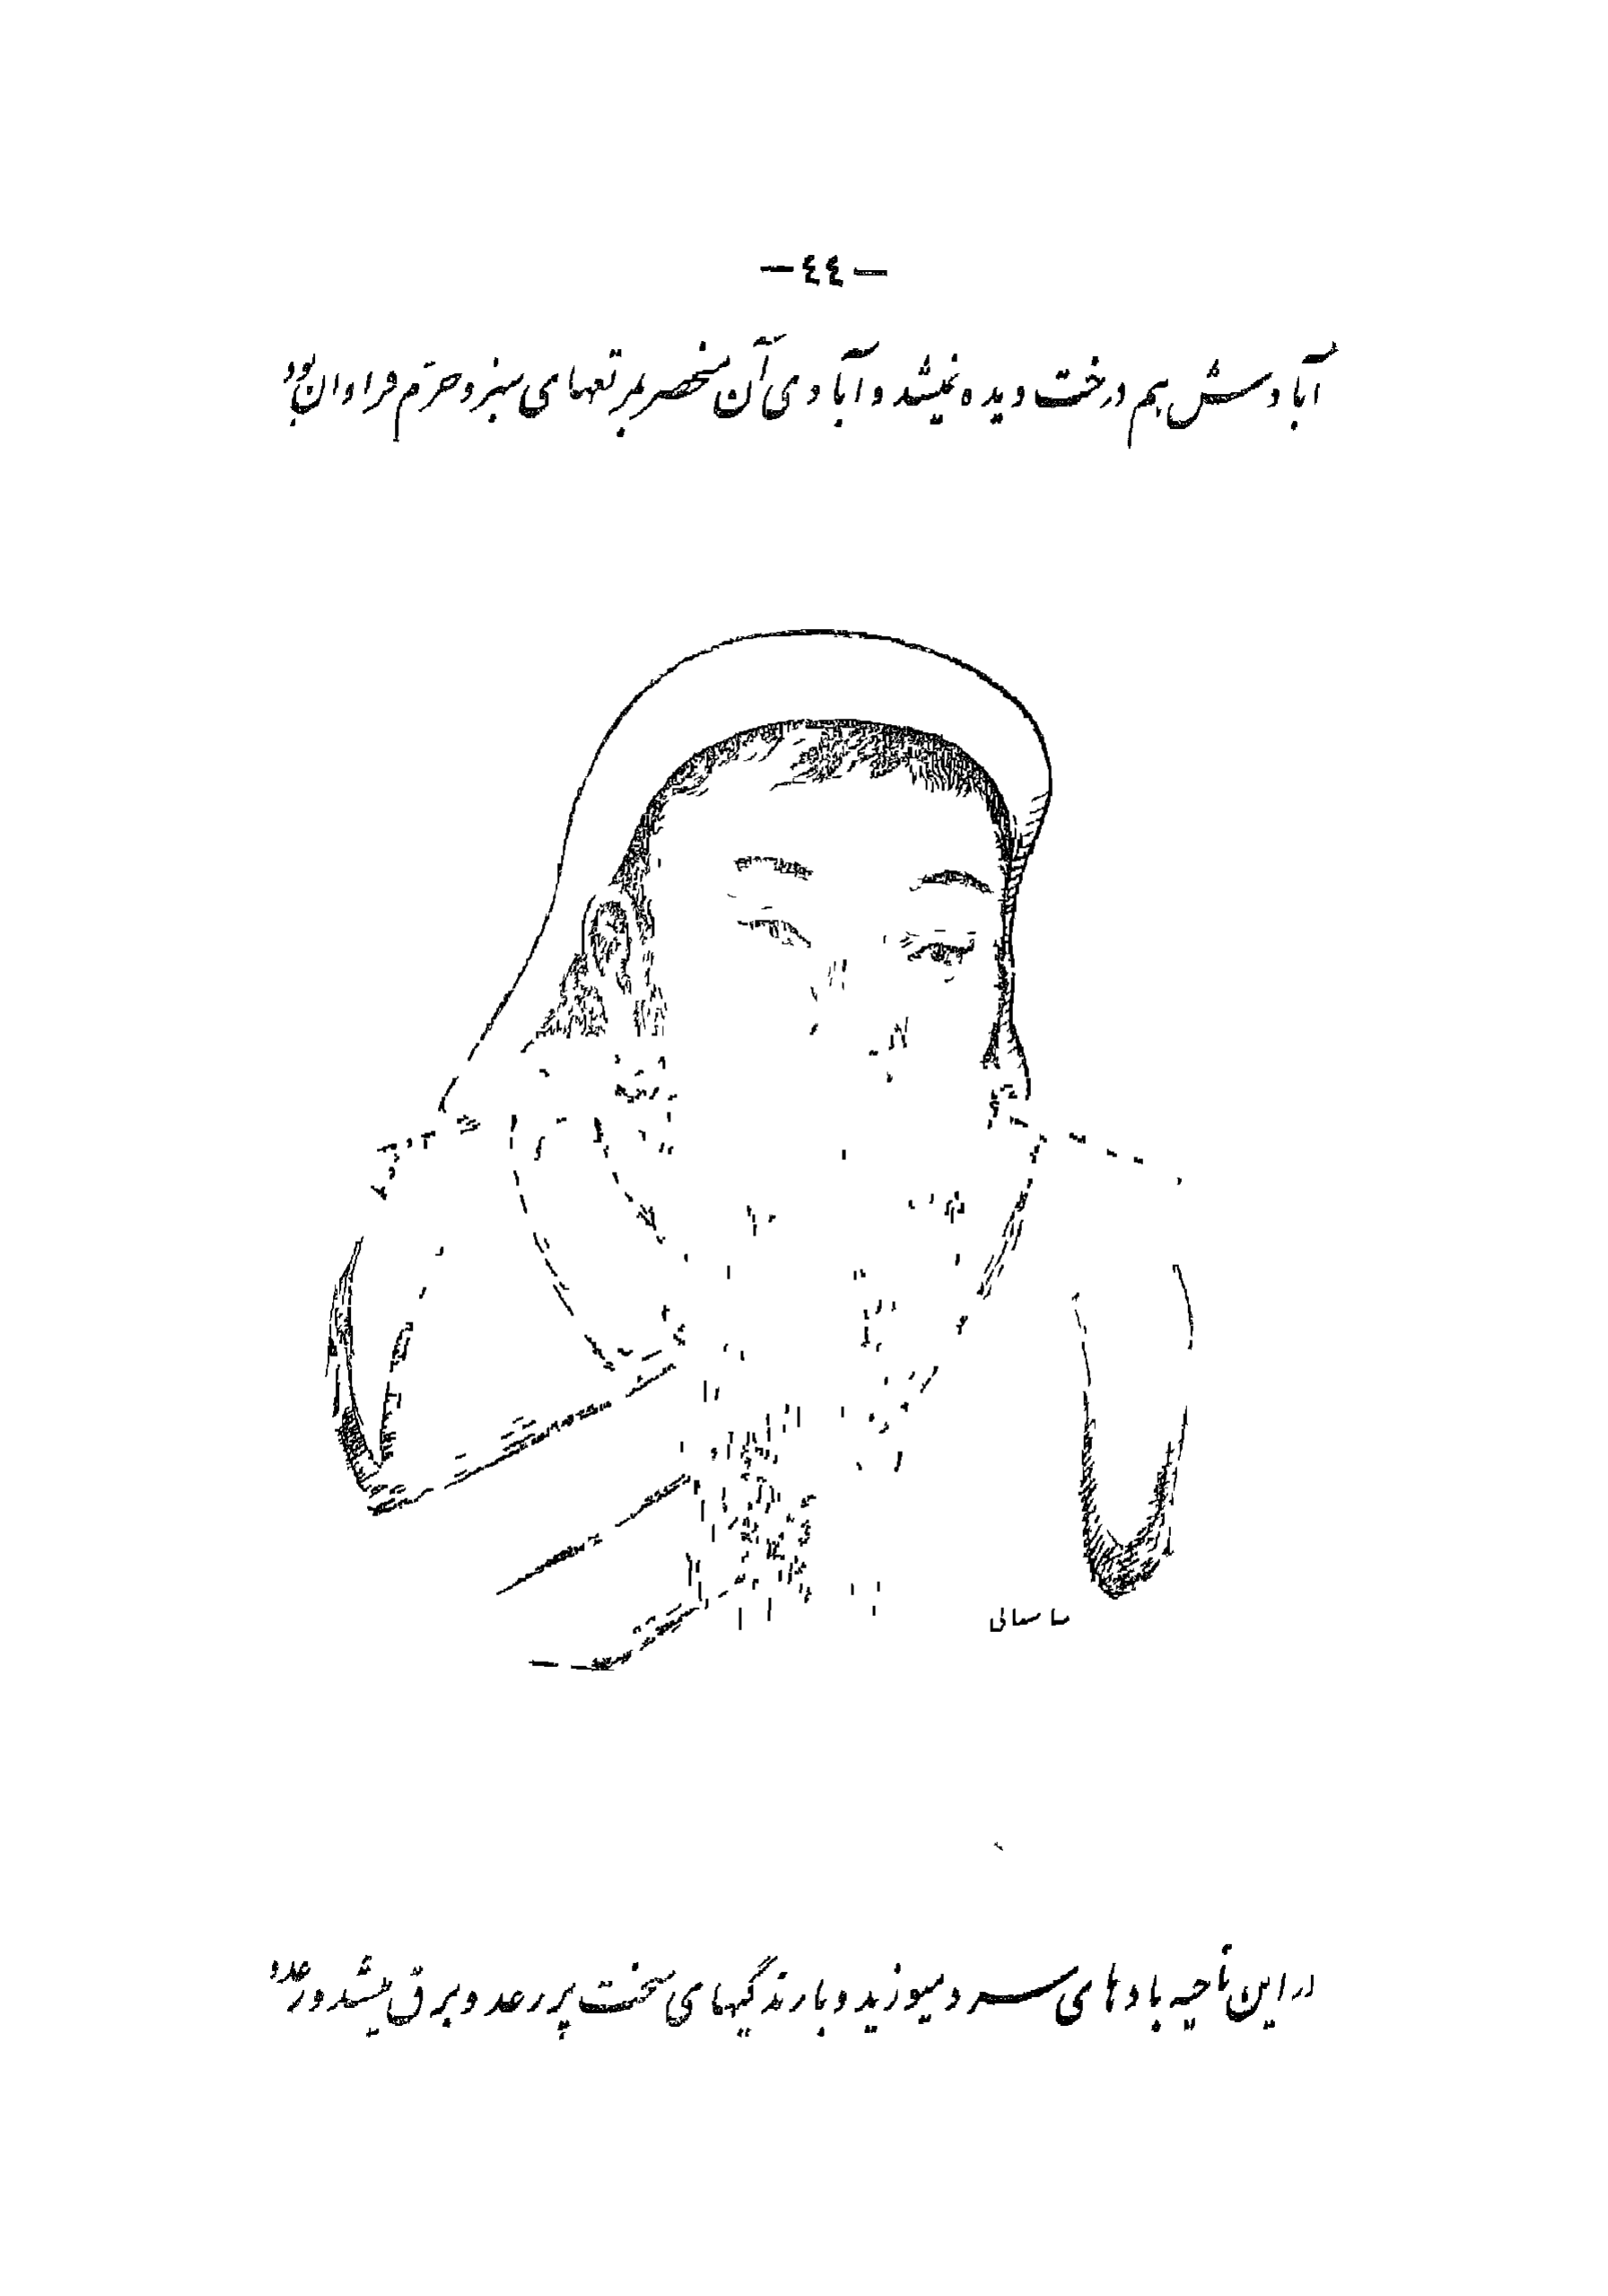 —٤٤—
آبادش هم درخت دیده نمیشد و آبادی آن منحصر بمرتعهای سبز و خرّم فراوان بود
در این ناحیه بادهای سرد میوزید و بارندگیهای سخت پر رعد و برق میشد و رعد و